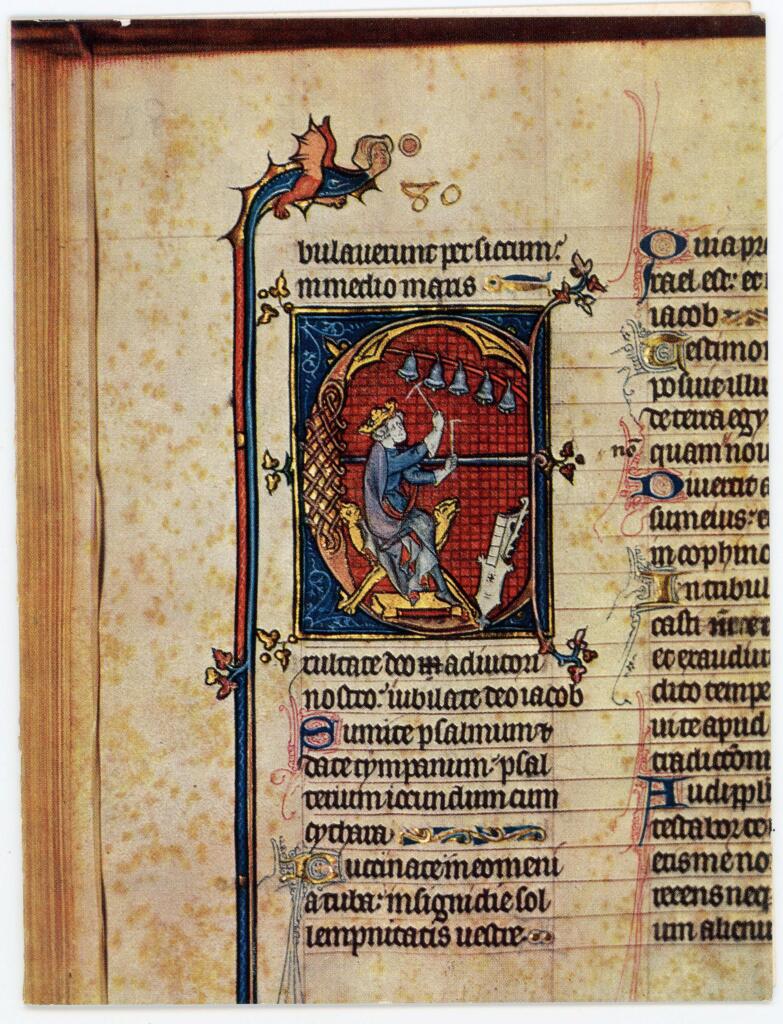 bulauerunt per siccum:
in medio maris
Exultate deo adiutori
nostro: iubilate deo iacob
Sumite psalmum &
date tympanum: psal
terium iocundum cum
cythara
Buccinate in eomeni
a tuba: insigni die sol
lempnitatis uestre
Quia pre
israel est: et
iacob
Testimo
posuit illu
de terra egy
quam nou
Diuertit
sum eius: e
in cophino
In tribul
casti me et
et exaudiui
dito tempe
ui te apud
tradictoni
Audi ppli
testabor te
eris me no
recens neq
um alienu